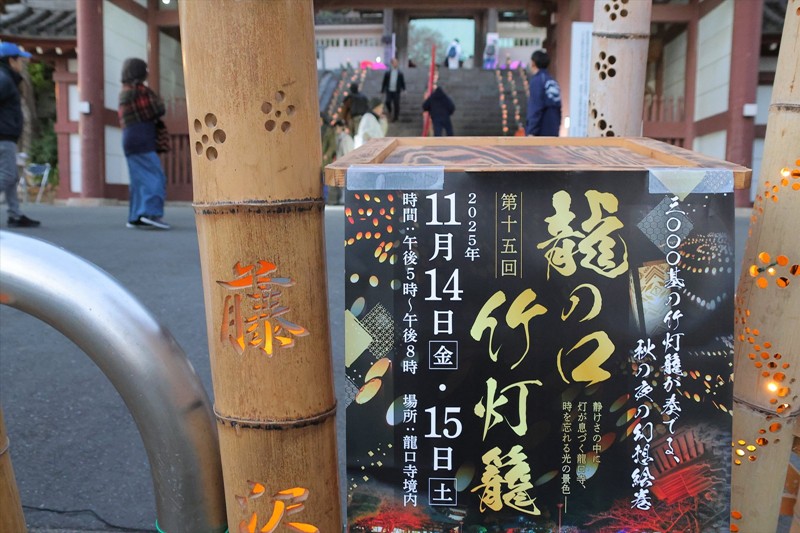 三〇〇〇基の竹灯籠が奏でる、
秋の夜の幻想絵巻
龍の口
竹灯籠
第十五回
静けさの中に
灯が息づく龍口寺、
時を忘れる光の景色――
2025年
11月14日金・15日土
時間：午後5時～午後8時　場所：龍口寺境内
藤
沢